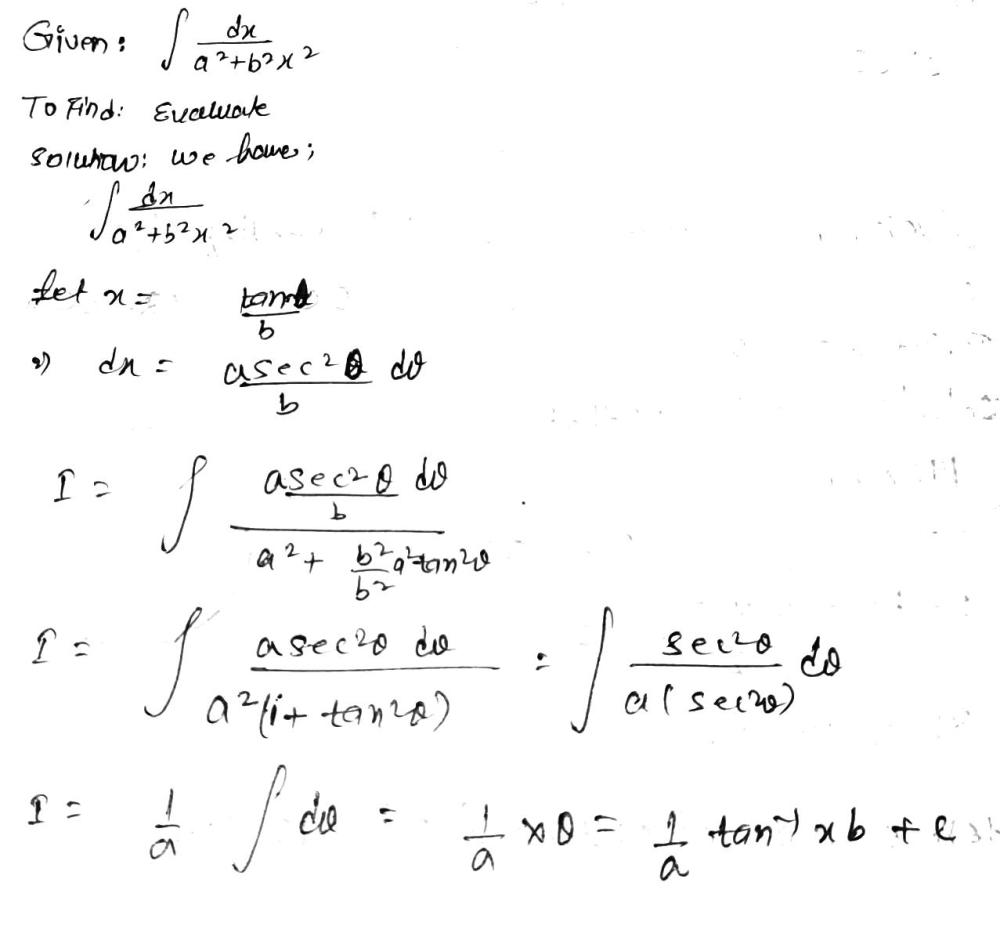 Given: ∫ dx / a²+b²x²
To Find: Evaluate
Solution: we have;
∫ dx / a²+b²x²
Let x = tanθ / b
⇒ dx = a sec²θ / b dθ
I = ∫ (a sec²θ dθ / b) / (a² + b²a²tan²θ / b²)
I = ∫ a sec²θ dθ / a²(1+ tan²θ) = ∫ sec²θ / a(sec²θ) dθ
I = 1/a ∫ dθ = 1/a × θ = 1/a tan⁻¹ xb + c